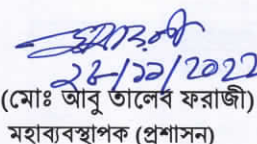 ২৮/১১/2022
(মোঃ আবু তালেব ফরাজী)
মহাব্যবস্থাপক (প্রশাসন)